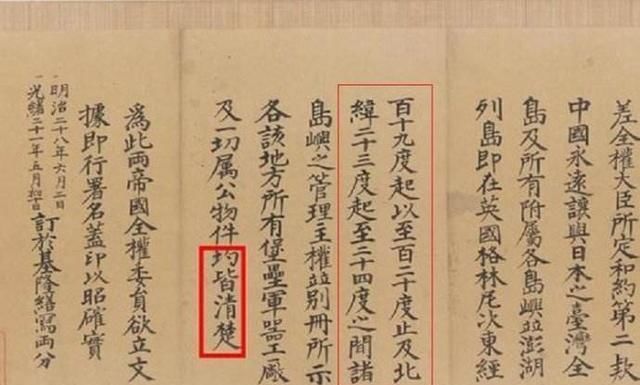 差全權大臣所定和約第二款
中國永遠讓與日本之臺灣全
島及所有附屬各島嶼並澎湖
列島即在英國格林尾次東經
百十九度起以至百二十度止及北
緯二十三度起至二十四度之間諸
島嶼之管理主權並別冊所示
各該地方所有堡壘軍器工廠
及一切属公物件均皆清楚
為此兩帝國全權委員欲立文
據即行署名蓋印以昭確實
明治二十八年六月二日
光緒二十一年五月初十日
訂於基隆繕寫兩分